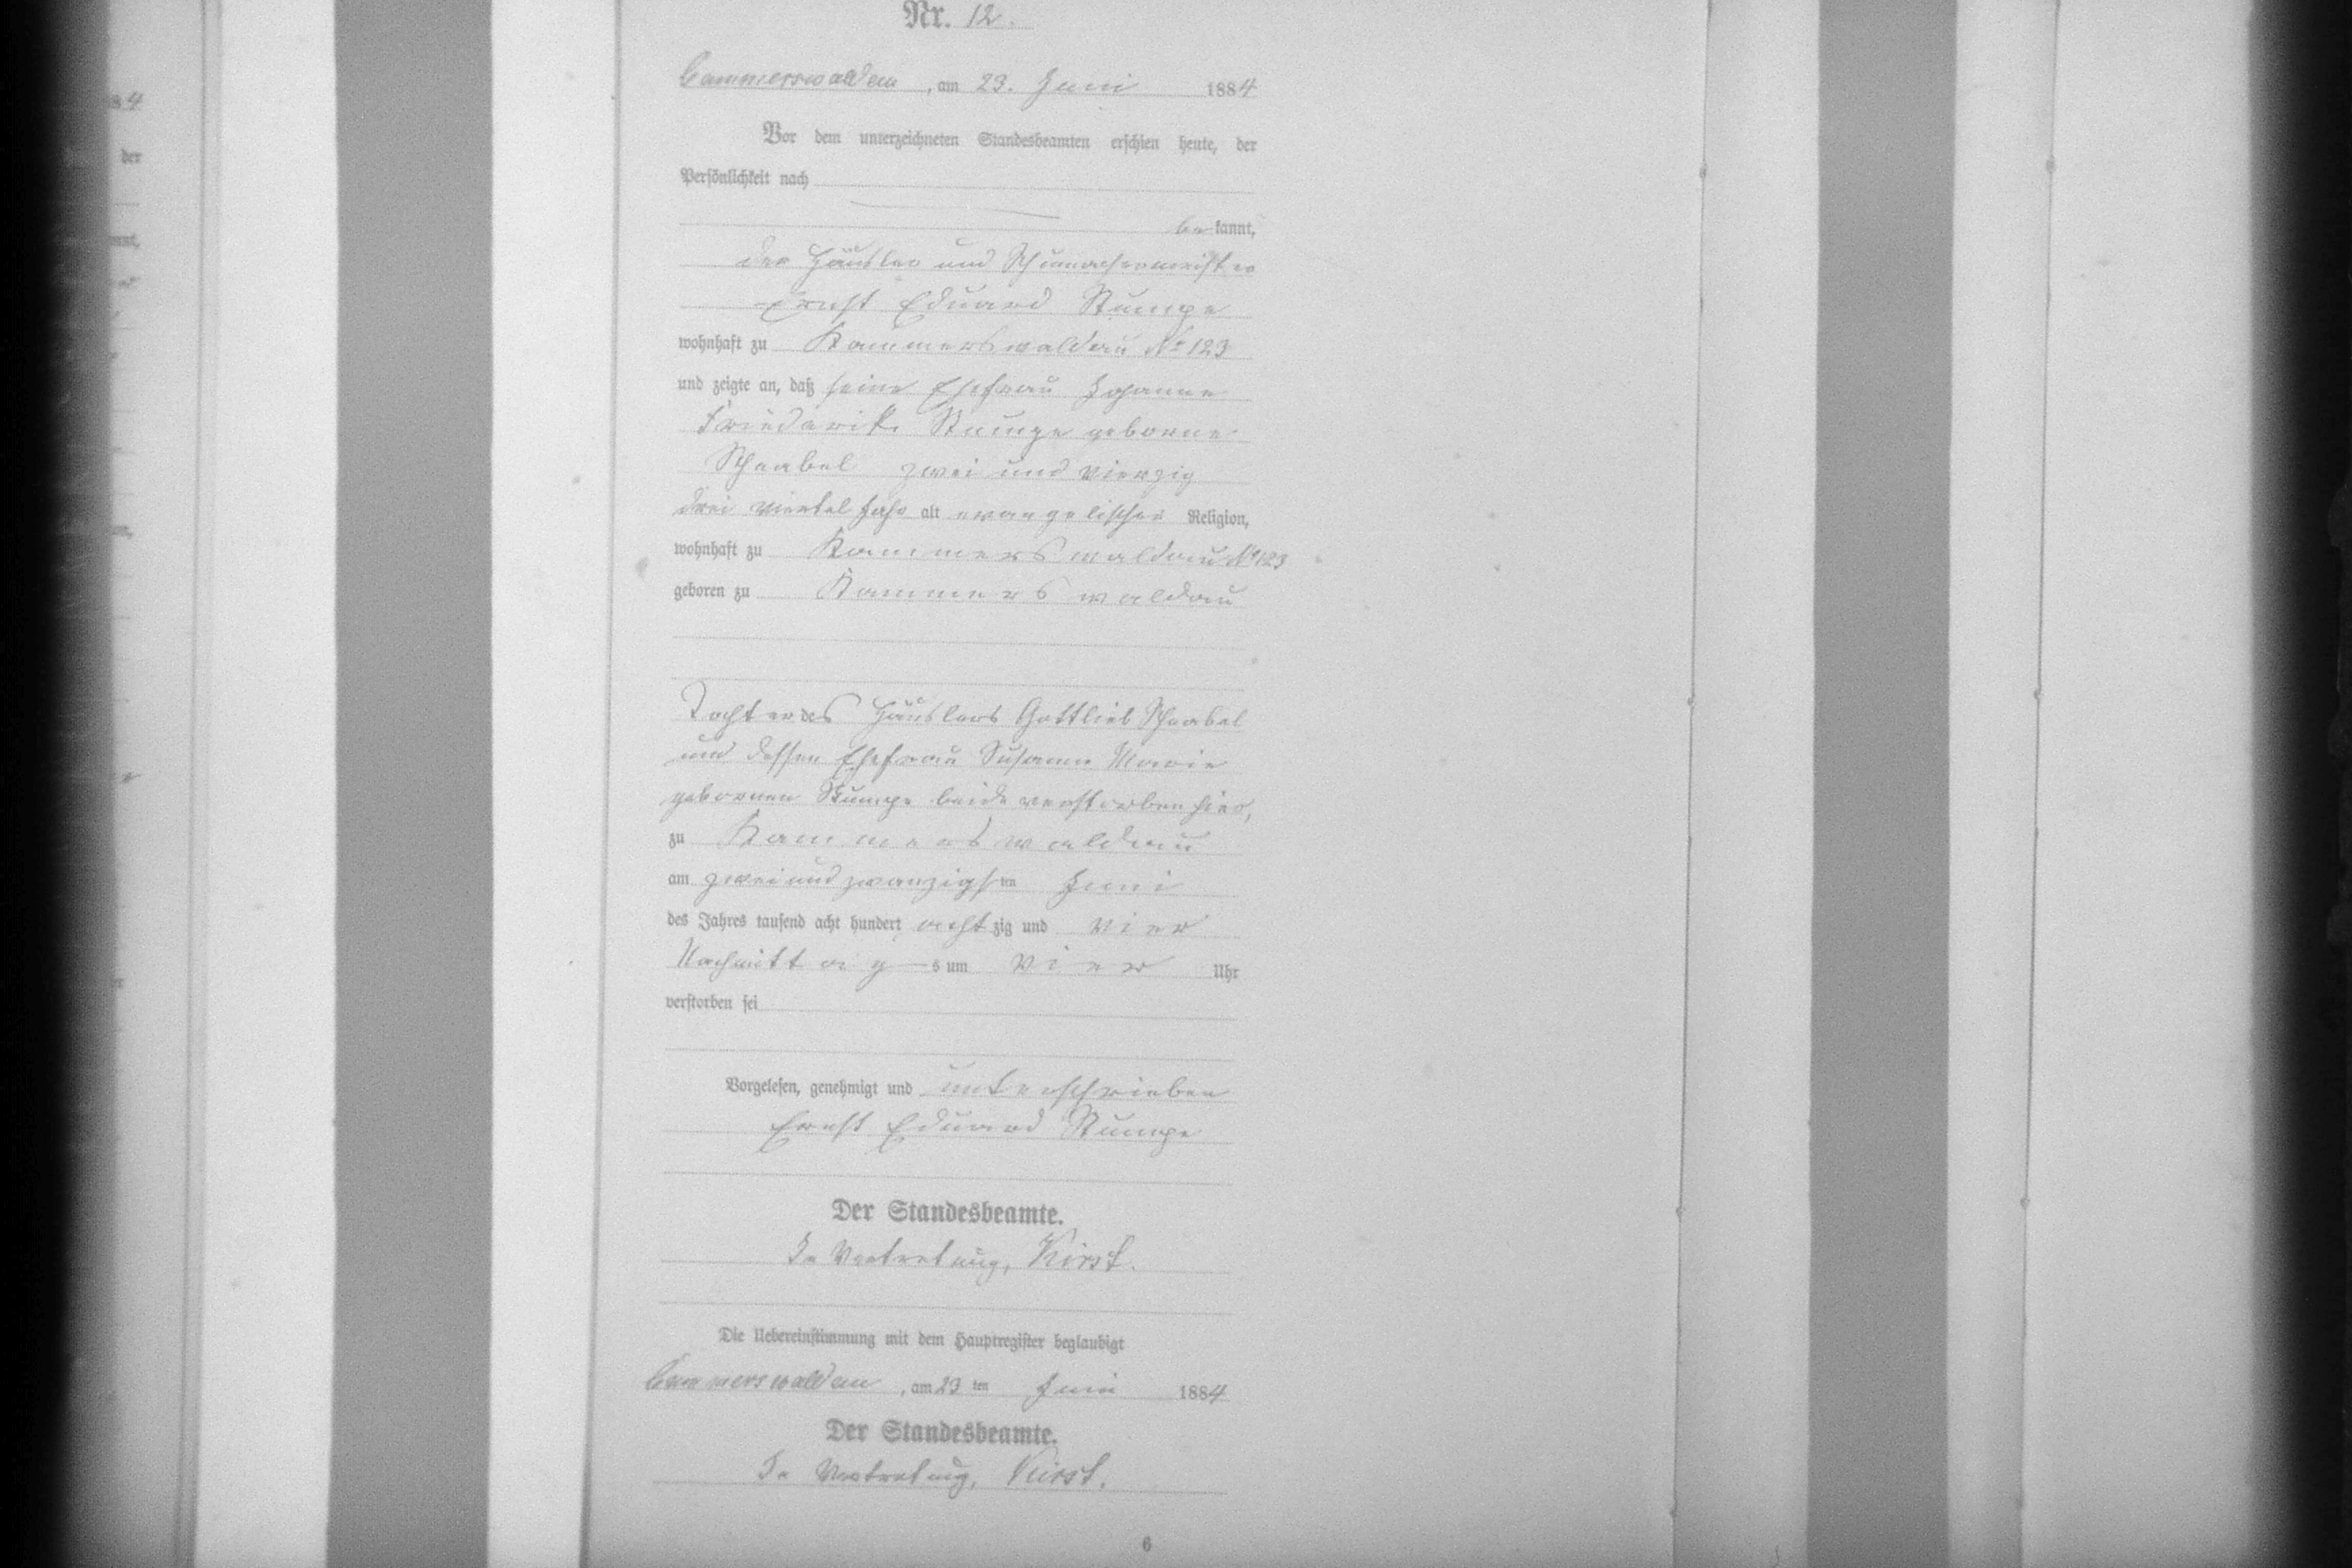 Nr. 12.
Cammerswaldau, am 23. Juni 1884
Vor dem unterzeichneten Standesbeamten erschien heute, der
Persönlichkeit nach
bekannt,
der Häusler und Schumachermeister
Ernst Eduard Stumpe
wohnhaft zu Kammerswaldau No 123
und zeigte an, daß seine Ehefrau Johanne
Friederike Stumpe geborne
zwei und vierzig
drei viertel Jahr alt evangelischer Religion,
wohnhaft zu Kammerswaldau No 123
geboren zu Kammerswaldau
Tochter des Häuslers Gottlieb
und dessen Ehefrau Susanne Marie
gebornen Stumpe beide verstorben hier,
zu Kammerswaldau
am zwei und zwanzigsten Juni
des Jahres tausend acht hundert achtzig und vier
Nachmittags um vier Uhr
verstorben sei
Vorgelesen, genehmigt und unterschrieben
Ernst Eduard Stumpe
Der Standesbeamte.
In Vertretung, Kirst.
Die Uebereinstimmung mit dem Hauptregister beglaubigt
Cammerswaldau, am 23ten Juni 1884
Der Standesbeamte.
In Vertretung, Kirst.
6